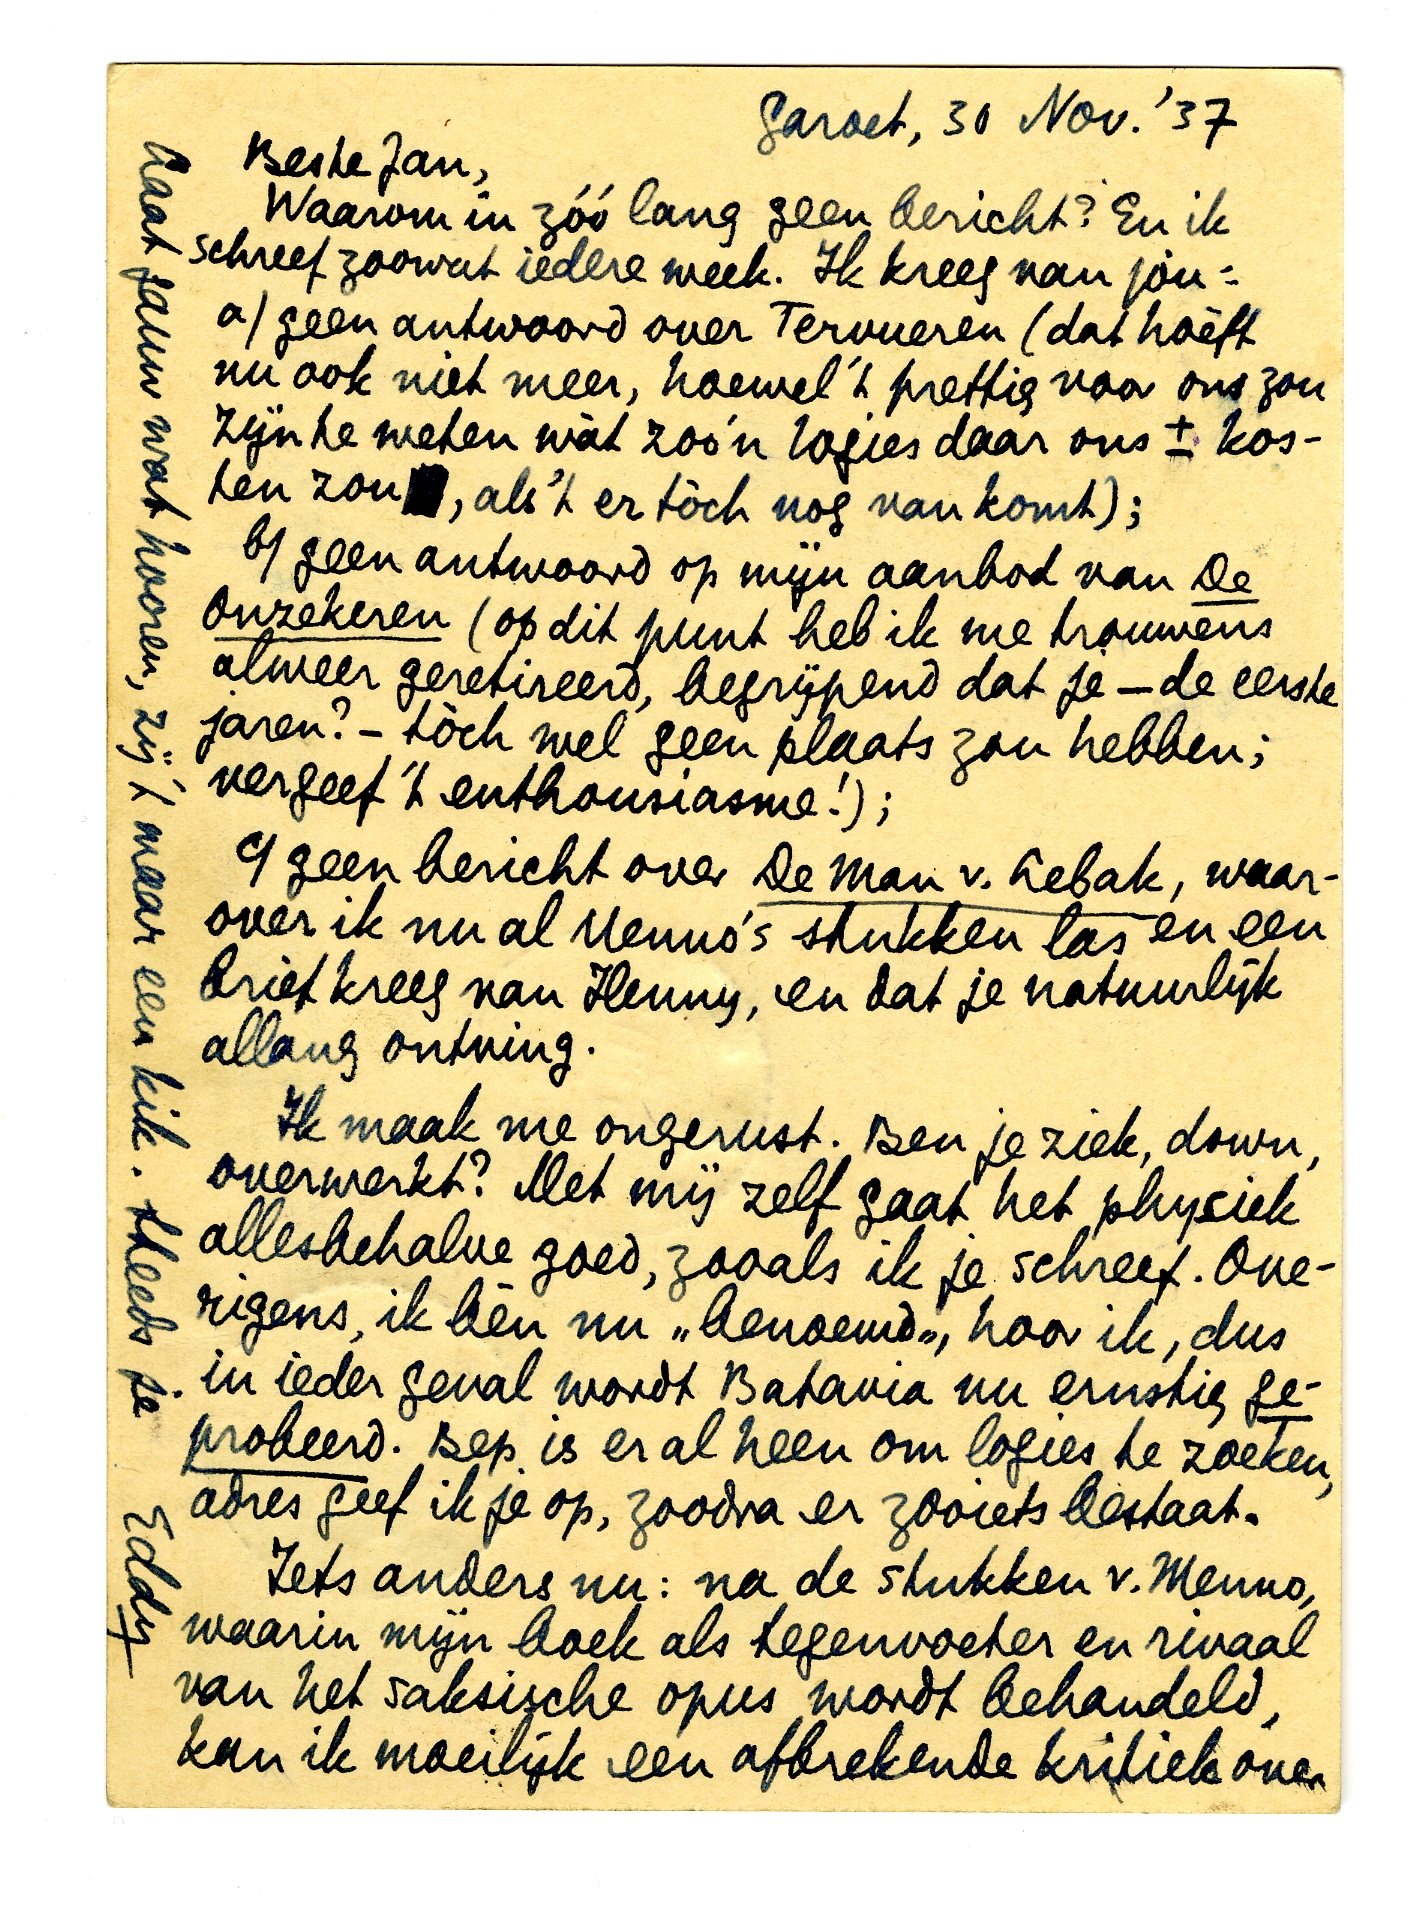 Garoet, 30 Nov. '37
Beste Jan,
Waarom in zóó lang geen bericht? En ik
schreef zoowat iedere week. Ik kreeg van jòu:
a) geen antwoord over Tervueren (dat hoèft
nu ook niet meer, hoewel 't prettig voor ons zou
zijn te weten wàt zoo'n logies daar ons ± kos-
ten zou, als 't er tòch nog van komt);
b) geen antwoord op mijn aanbod van De
Onzekeren (op dit punt heb ik me trouwens
alweer geretireerd, begrijpend dat je – de eerste
jaren? – tòch wel geen plaats zou hebben;
vergeef 't enthousiasme!);
c) geen bericht over De Man v. Lebak, waar-
over ik nu al Menno's stukken las en een
brief kreeg van Henny, en dat je natuurlijk
allang ontving.
Ik maak me ongerust. Ben je ziek, down,
overwerkt? Met mij zelf gaat het physiek
allesbehalve goed, zooals ik je schreef. Ove-
rigens, ik bèn nu „benoemd", hoor ik, dus
in ieder geval wordt Batavia nu ernstig ge-
probeerd. Bep is er al heen om logies te zoeken,
adres geef ik je op, zoodra er zooiets bestaat.
Iets anders nu: na de stukken v. Menno,
waarin mijn boek als tegenvoeter en rivaal
van het saksische opus wordt behandeld,
kan ik moeilijk een afbrekende kritiek over
Laat gauw wat hooren, zij 't maar een kik. Steeds je
Eddy